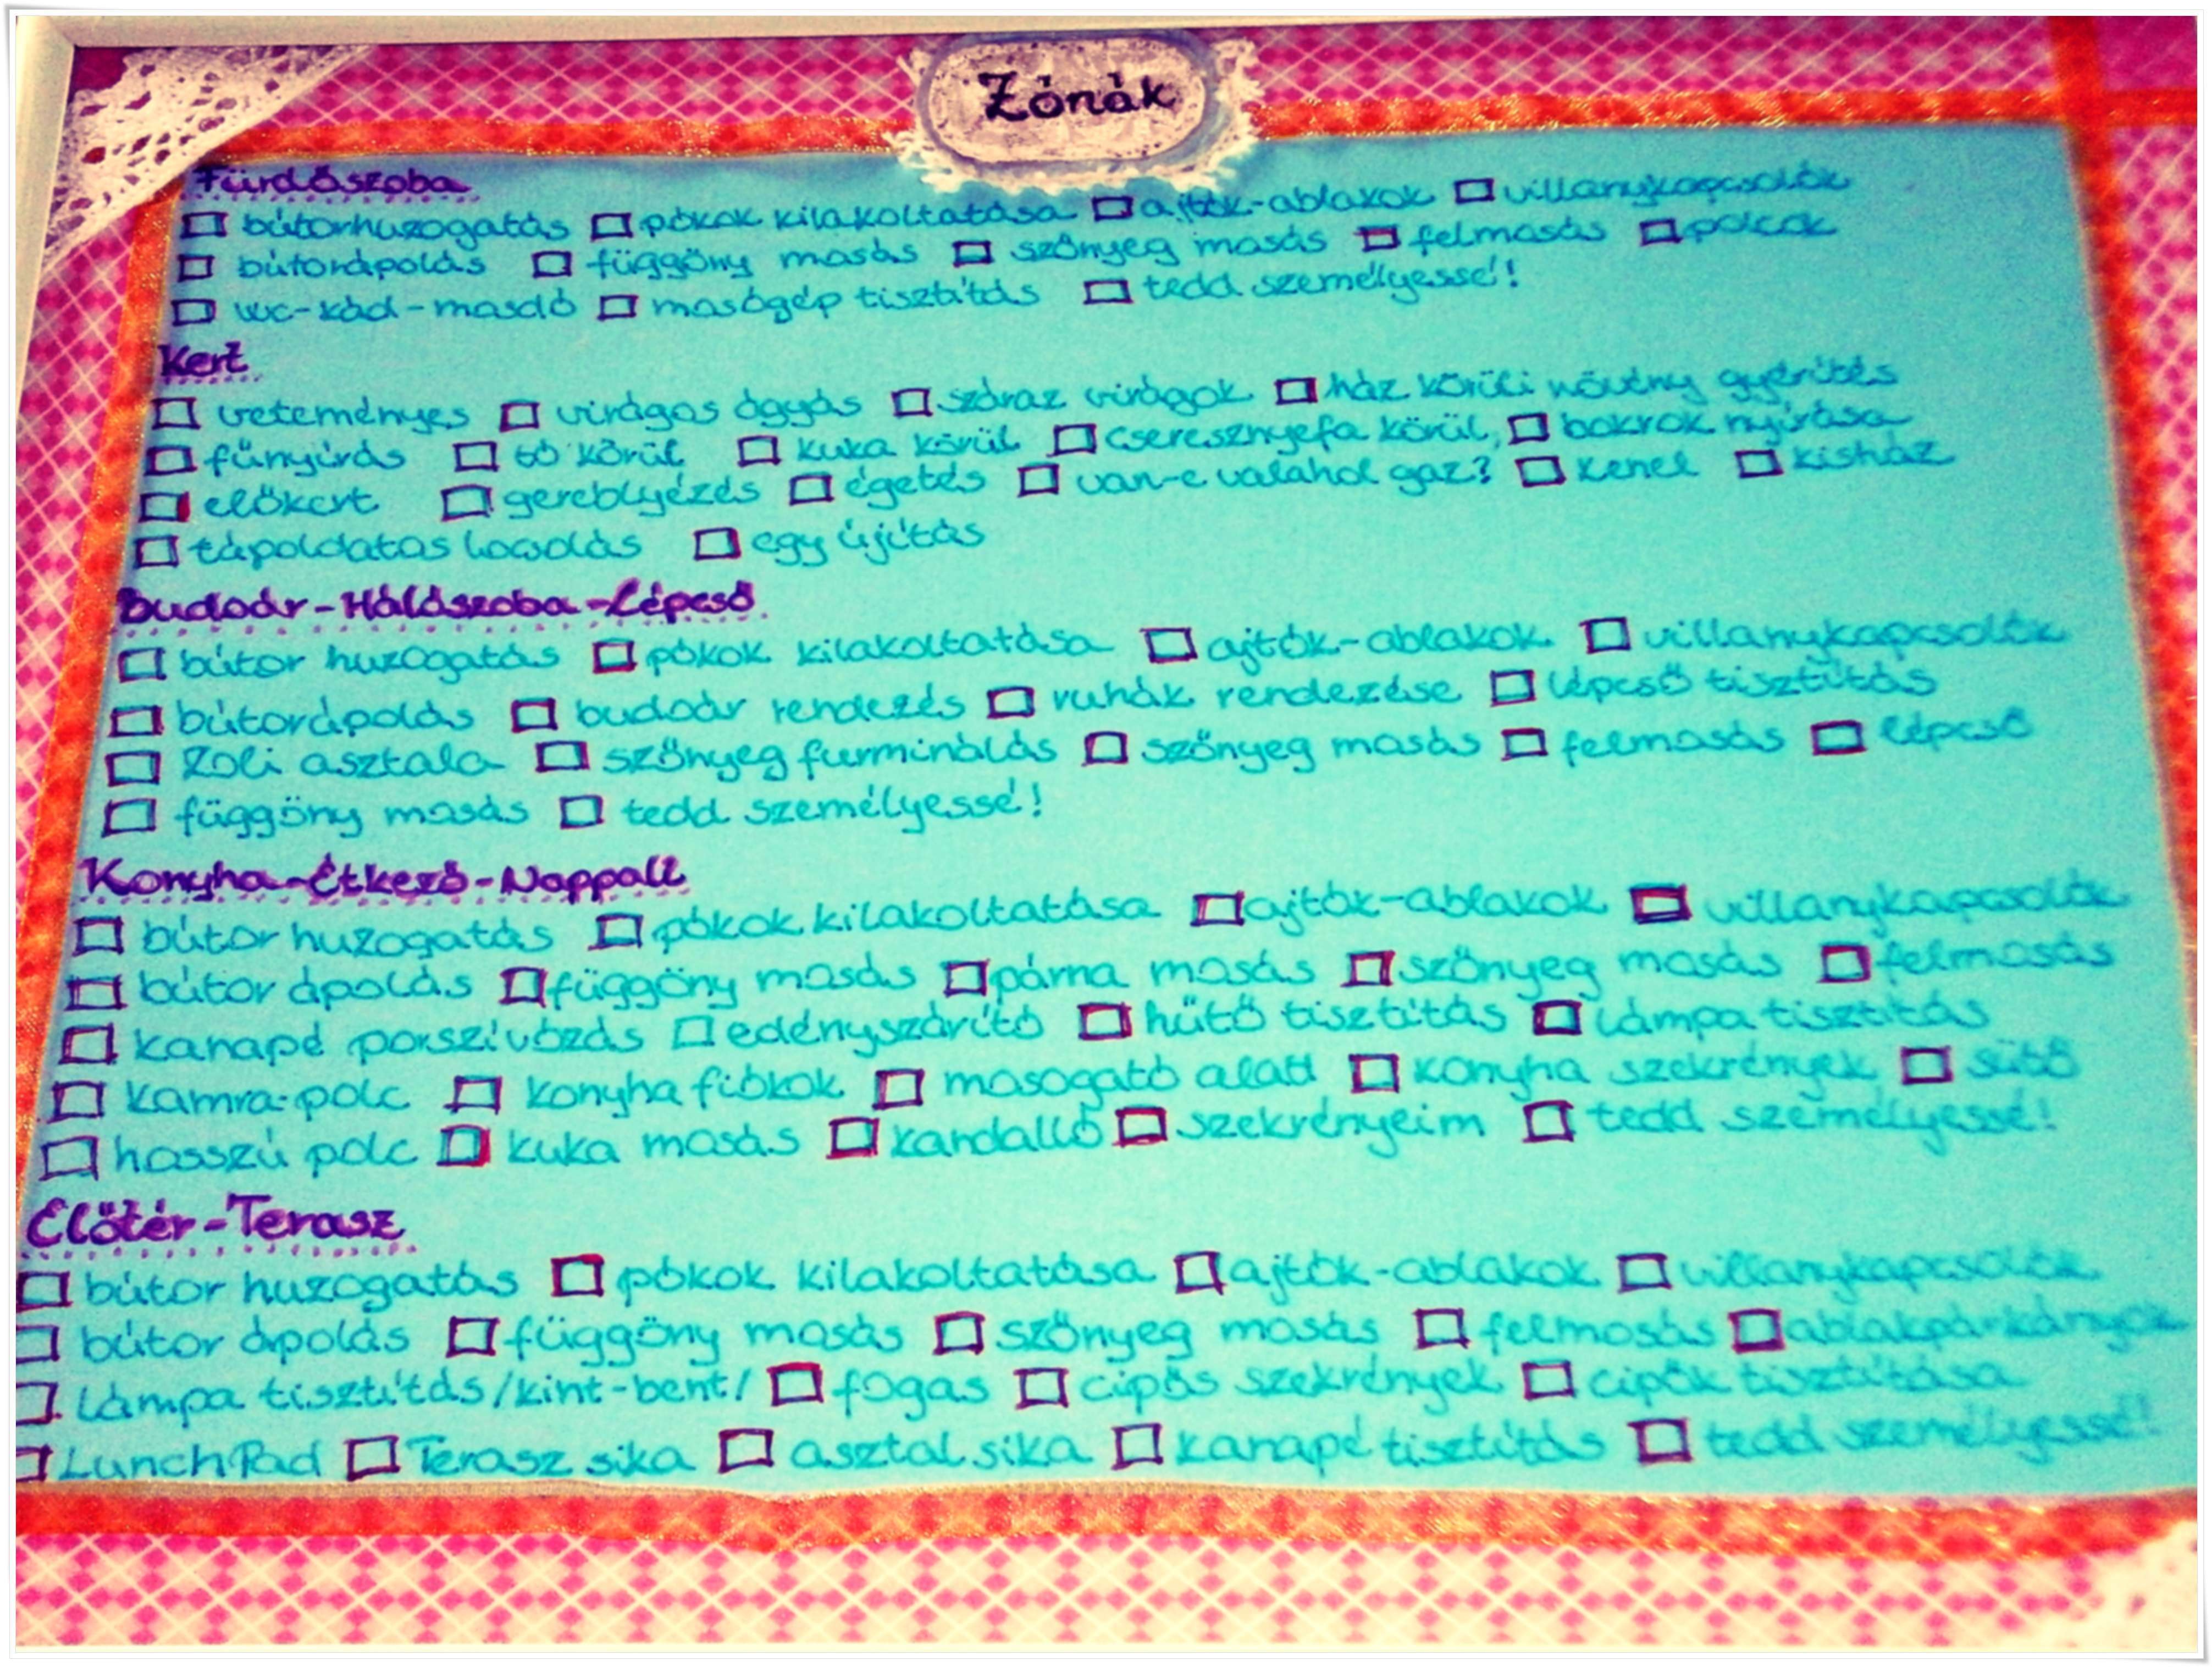 Zónák
Fürdőszoba
□ bútorhuzogatás □ pókok kilakoltatása □ ajtók-ablakok □ villanykapcsolók
□ bútorápolás □ függöny mosás □ szőnyeg mosás □ felmosás □ polcok
□ wc-kád-mosdó □ mosógép tisztítás □ tedd személyessé!
Kert
□ veteményes □ virágos ágyás □ száraz virágok □ ház körüli növény gyérítés
□ fűnyírás □ tó körül □ kuka körül □ cseresznyefa körül, □ bokrok nyírása
□ előkert □ gereblyézés □ égetés □ van-e valahol gaz? □ kenel □ kisház
□ tápoldatos locsolás □ egy újítás
Budoár-Hálószoba-Lépcső
□ bútor huzogatás □ pókok kilakoltatása □ ajtók-ablakok □ villanykapcsolók
□ bútorápolás □ budoár rendezés □ ruhák rendezése □ lépcső tisztítás
□ Zoli asztala □ szőnyeg furminálás □ szőnyeg mosás □ felmosás □ lépcső
□ függöny mosás □ tedd személyessé!
Konyha-Étkező-Nappali
□ bútor huzogatás □ pókok kilakoltatása □ ajtók-ablakok □ villanykapcsolók
□ bútor ápolás □ függöny mosás □ párna mosás □ szőnyeg mosás □ felmosás
□ kanapé porszívózás □ edényszárító □ hűtő tisztítás □ lámpa tisztítás
□ kamra-polc □ konyha fiókok □ mosogató alatt □ konyha szekrények □ sütő
□ hosszú polc □ kuka mosás □ kandalló □ szekrényeim □ tedd személyessé!
Előtér-Terasz
□ bútor huzogatás □ pókok kilakoltatása □ ajtók-ablakok □ villanykapcsolók
□ bútor ápolás □ függöny mosás □ szőnyeg mosás □ felmosás □ ablakpárkányok
□ lámpa tisztítás/kint-bent/ □ fogas □ cipős szekrények □ cipők tisztítása
□ LunchPad □ Terasz sika □ asztal sika □ kanapé tisztítás □ tedd személyessé!